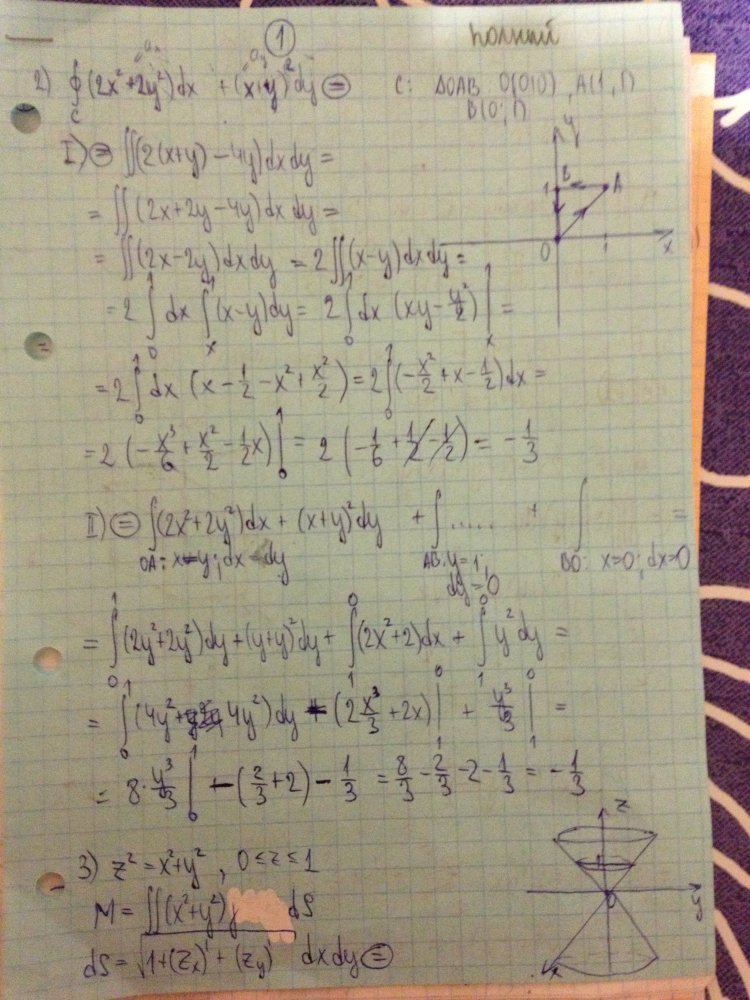 ① полный
2) ∮_C (2x²+2y²)dx + (x+y)²dy ⊜ C: ΔOAB O(0;0), A(1,1)
B(0;1)
I) ⊜ ∬(2(x+y) − 4y)dxdy =
= ∬(2x+2y−4y)dxdy =
= ∬(2x−2y)dxdy = 2∬(x−y)dxdy =
= 2∫₀¹dx ∫ₓ¹(x−y)dy = 2∫₀¹dx (xy − y²/2)|ₓ¹ =
= 2∫₀¹dx (x − 1/2 − x² + x²/2) = 2∫₀¹(−x²/2 + x − 1/2)dx =
= 2(−x³/6 + x²/2 − 1/2x)|₀¹ = 2(−1/6 + 1/2 − 1/2) = −1/3
II) ⊜ ∫(2x²+2y²)dx + (x+y)²dy + ∫ ..... + ∫ =
OA: x=y; dx=dy AB: y=1, dy=0 BO: x=0; dx=0
= ∫₀¹(2y²+2y²)dy + (y+y)²dy + ∫₁⁰(2x²+2)dx + ∫₁⁰y²dy =
= ∫₀¹(4y²+4y²)dy + (2x³/3 + 2x)|₁⁰ + y³/3|₁⁰ =
= 8·y³/3|₀¹ − (2/3+2) − 1/3 = 8/3 − 2/3 − 2 − 1/3 = −1/3
3) z² = x²+y², 0≤z≤1
M = ∬(x²+y²) dS
dS = √(1+(z_x)²+(z_y)) dxdy ⊜
y
B
A
1
O
1
x
z
1
0
y
x